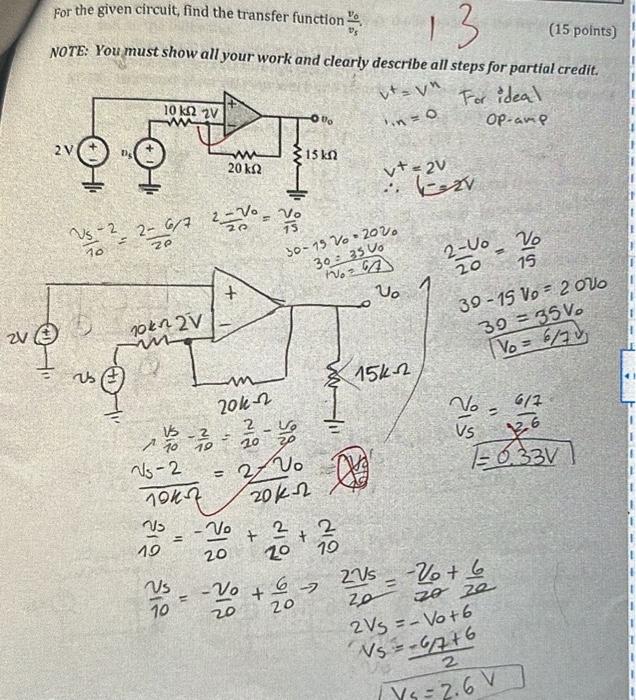 For the given circuit, find the transfer function vo/vs.
13
(15 points)
NOTE: You must show all your work and clearly describe all steps for partial credit.
v+ = vn For ideal
iin = 0 op-amp
10 kΩ 2V
+
vo
2 V
+
vs
+
20 kΩ
15 kΩ
v+ = 2V
∴ V- = 2V
(vs - 2)/10 = (2 - 6/7)/20
(2 - vo)/20 = vo/15
30 - 15 vo = 20 vo
30 = 35 vo
vo = 6/7
(2 - vo)/20 = vo/15
30 - 15 vo = 20 vo
30 = 35 vo
vo = 6/7 v
2V
+
10kΩ 2V
+
-
vo
vs
+
20kΩ
15kΩ
vs/10 - 2/10 = 2/20 - vo/20
(vs - 2)/10kΩ = (2 - vo)/20kΩ
vo/vs = (6/7)/2.6
= 0.33V
vs/10 = -vo/20 + 2/20 + 2/10
vs/10 = -vo/20 + 6/20 → 2vs/20 = -vo/20 + 6/20
2vs = -vo + 6
vs = (-6/7 + 6)/2
vs = 2.6 V